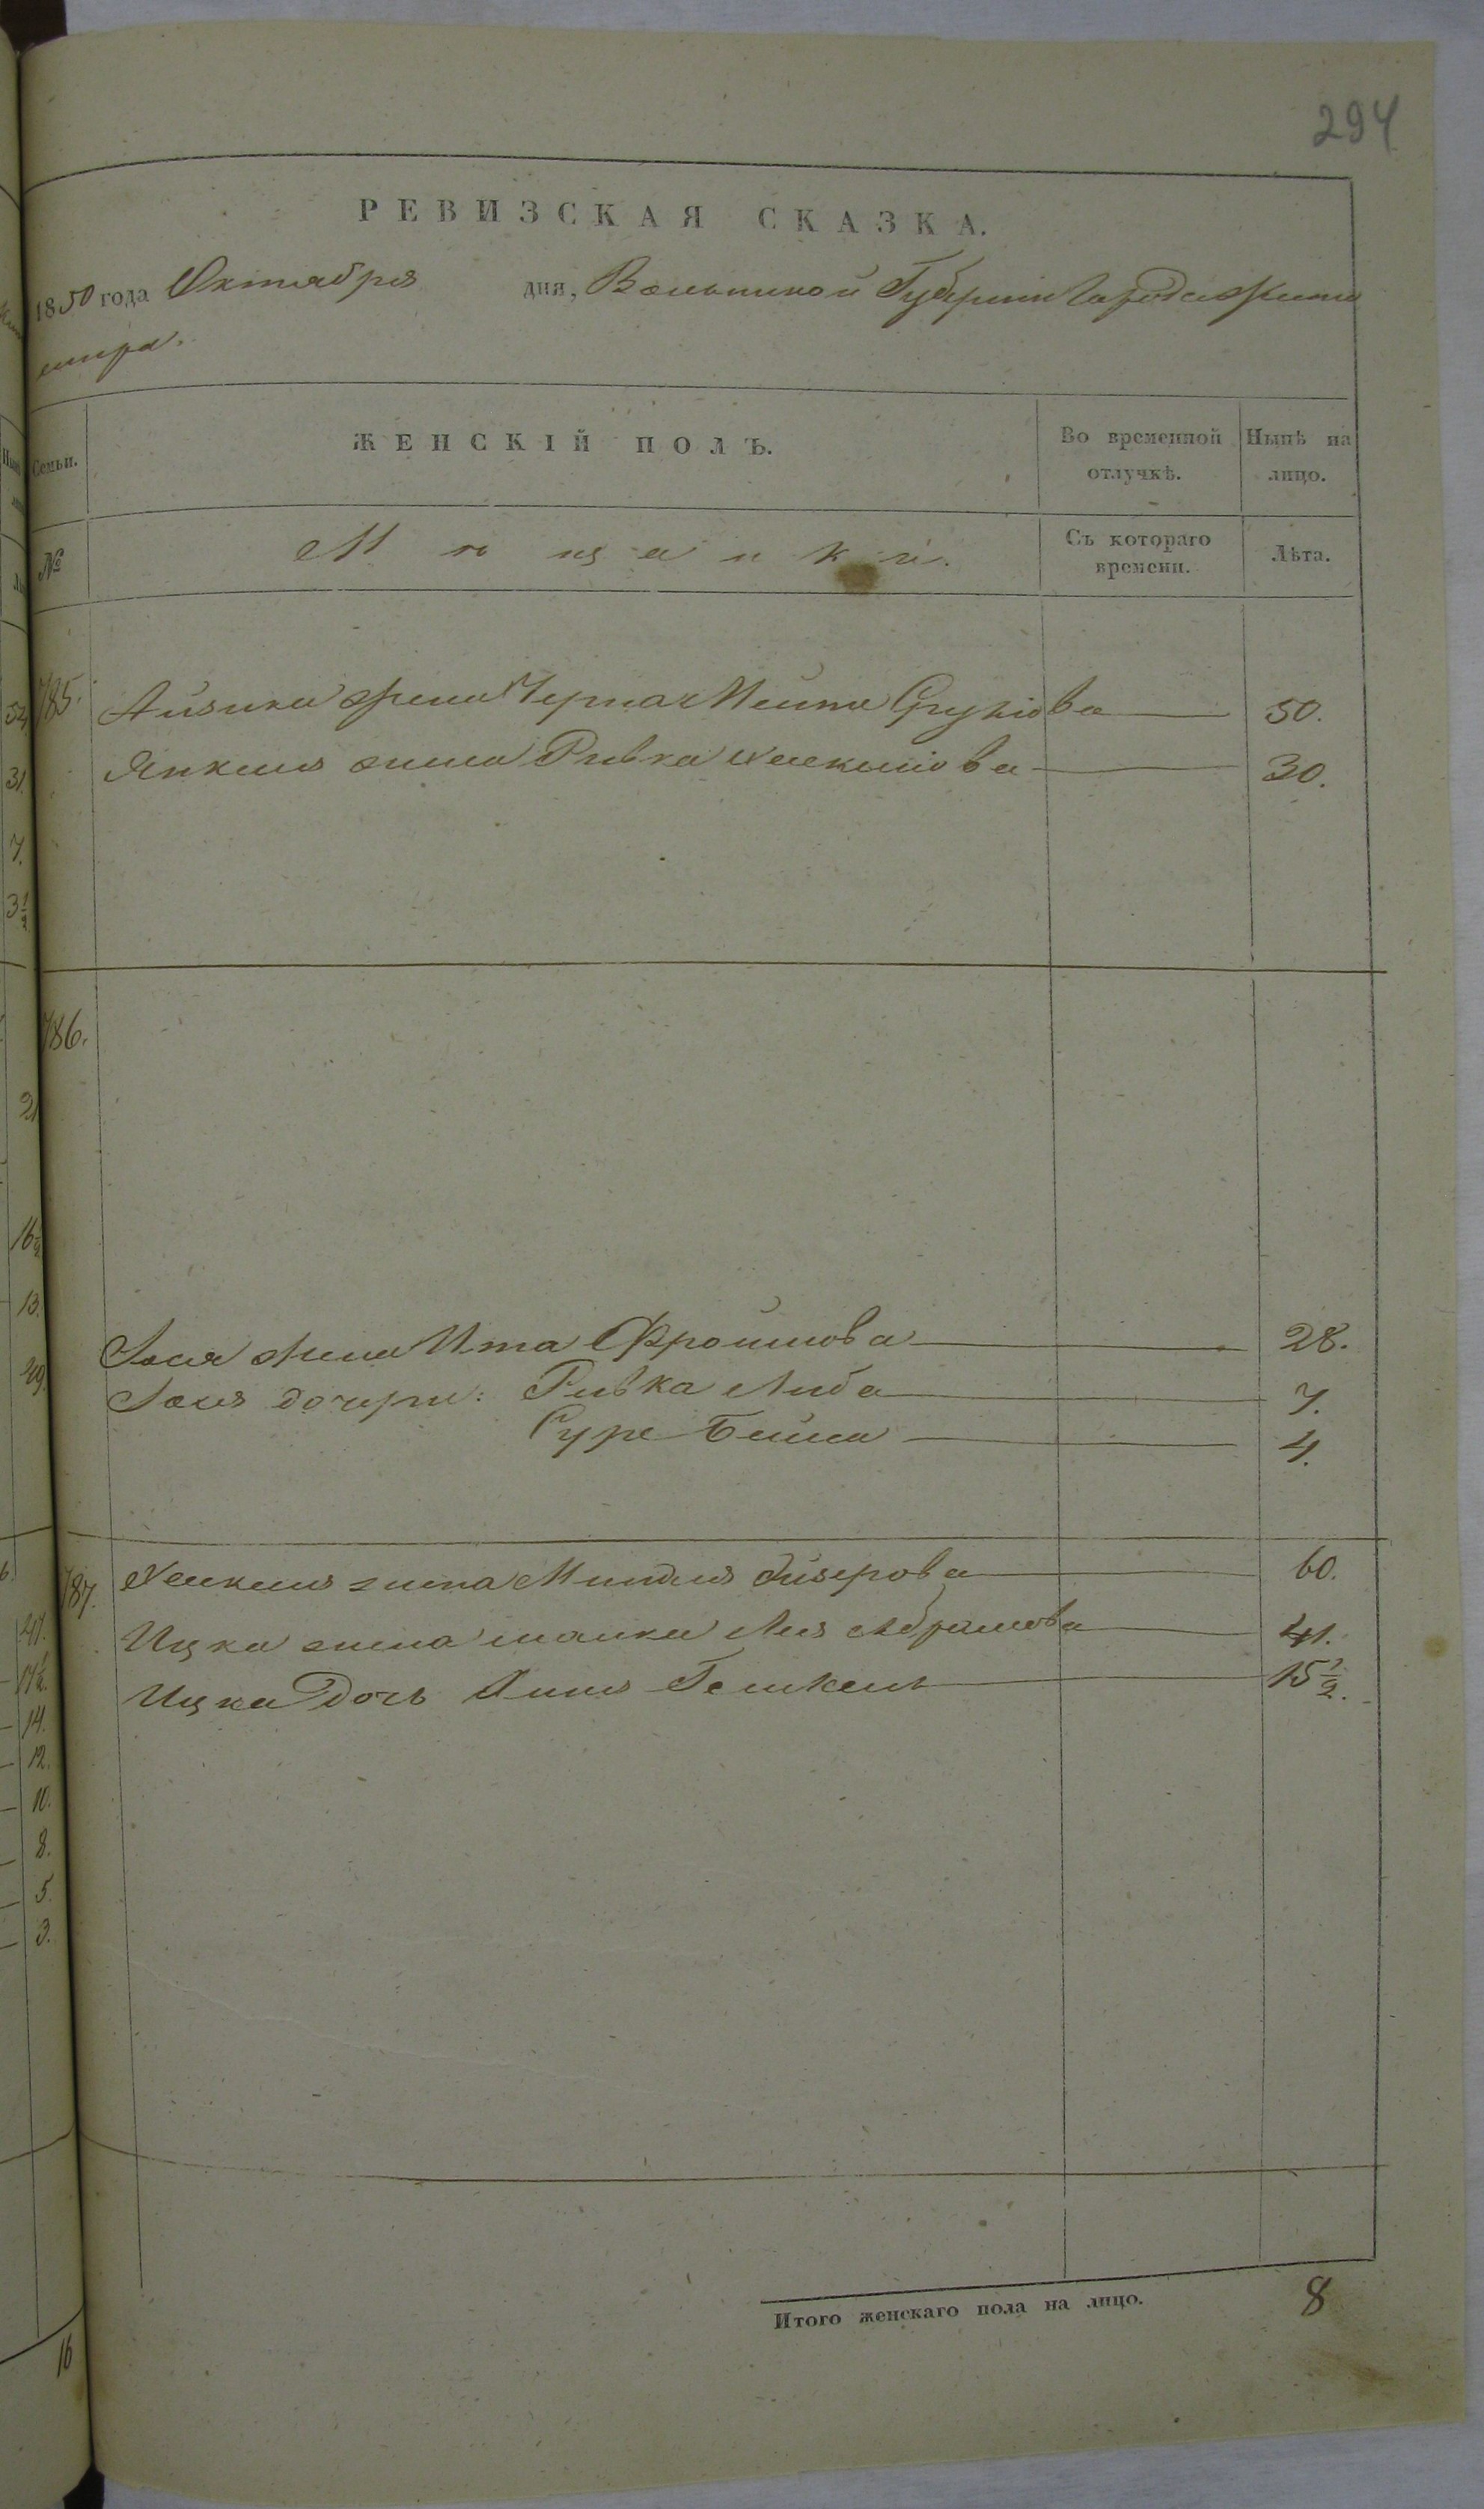 294
РЕВИЗСКАЯ СКАЗКА.
1850 года Октября дня, Волынской Губернии города Жито
мира.
Семьи. ЖЕНСКІЙ ПОЛЪ. Во временной отлучкѣ. Нынѣ на лицо.
№ Мѣщанки. Съ котораго времени. Лѣта.
785. Айзика жена Черна Мейта Сруліова 50.
Янкеля жена Ривка 30.
786.
Іося жена Ита Фроимова 28.
Іося дочери: Ривка Либа 7.
Суре Бейла 4.
787. жена Миндля Лізерова 60.
Ицка жена Лея Абрамова 41.
Ицка дочь 15 1/2.
Итого женскаго пола на лицо. 8
54
31.
7.
3 1/2
21
16 1/2
13.
29.
41.
17 1/2.
14.
12.
10.
8.
5.
3.
16